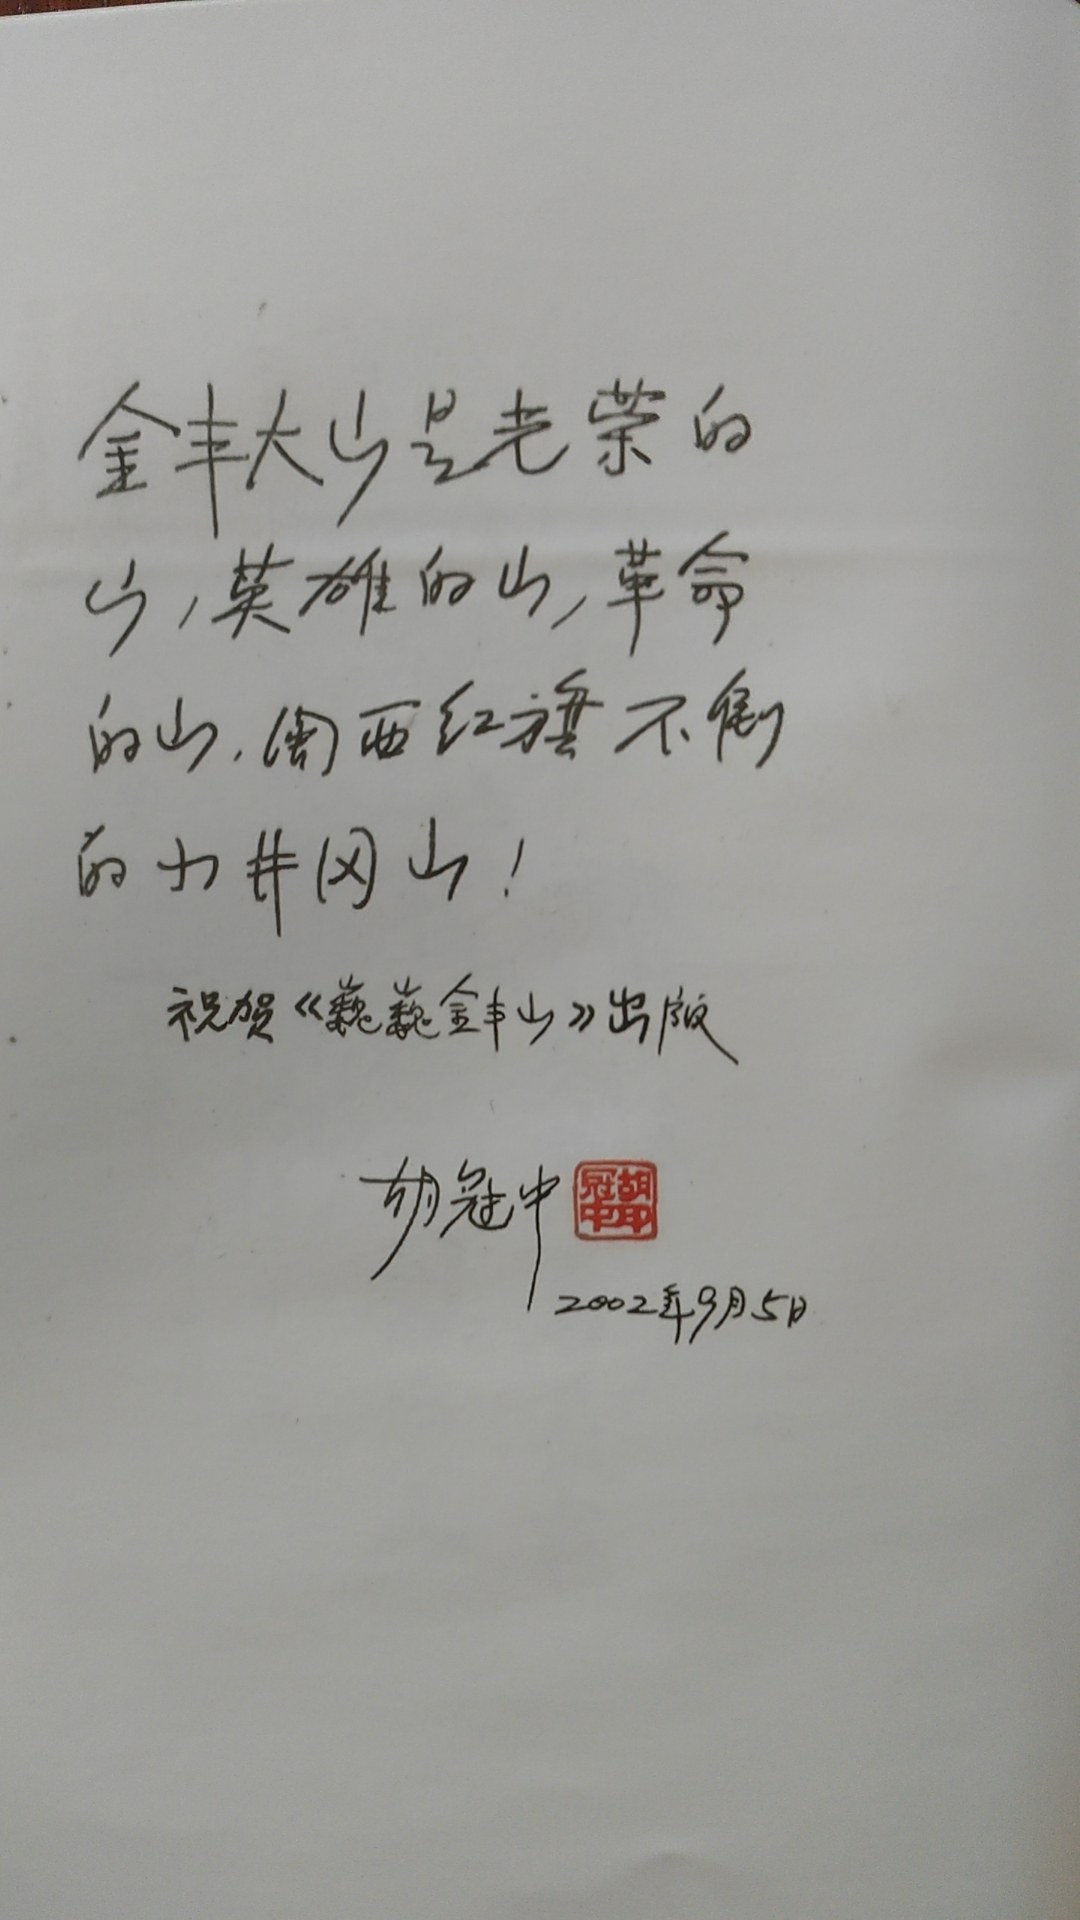 金丰大山是光荣的
山,英雄的山,革命
的山.闽西红旗不倒
的小井冈山!
祝贺《巍巍金丰山》出版
胡冠中
胡冠中印
2002年9月5日